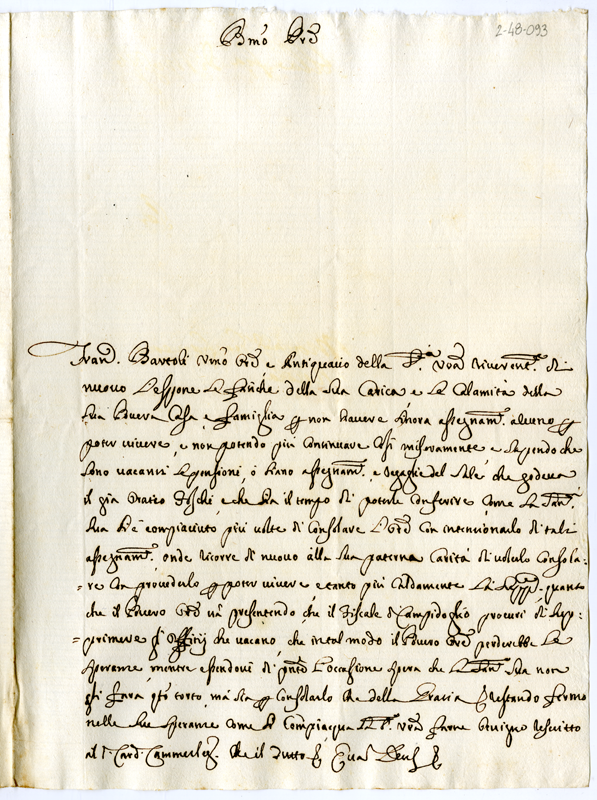 Bmo Pre
2-48-093
Franc. Bartoli umo Ore e Antiquario della Stà Vra riverent. di
nuovo l'espone le fatiche della sua Carica e le Calamità della
sua povera Casa, e famiglia p non havere sinora assegnam. alcuno p
poter vivere, e non potendo più continuare così miseramente e sapendo che
sono vacanti le pensioni, ò siano assegnam. e regaglie del Sale, che godeva
il già Matteo e che sia il tempo di poterle conferire, come la San.
Sua si è compiaciuta più volte di consolare l'Ore con intenzionarlo di tali
assegnam. onde ricorre di nuovo alla sua paterna Carità di volerlo consola-
=re con provederlo p poter vivere e tanto più caldamente La supp. quanto
che il povero Ore và presentendo, che il Fiscale di Campidoglio procuri di sup:
=primere gl'Offizij che vacano, che in tal modo il povero Ore perderebbe le
speranze, mentre essendovi di pnte l'occasione spera che la San. Sua non
gli farà qto torto, mà sia p consolarlo che della Grazia restando fermo
nelle sue speranze come si compiacqua la S. Vra farne benigno rescritto
al S. Card. Camerleng. Che il tutto & Quas Deus &